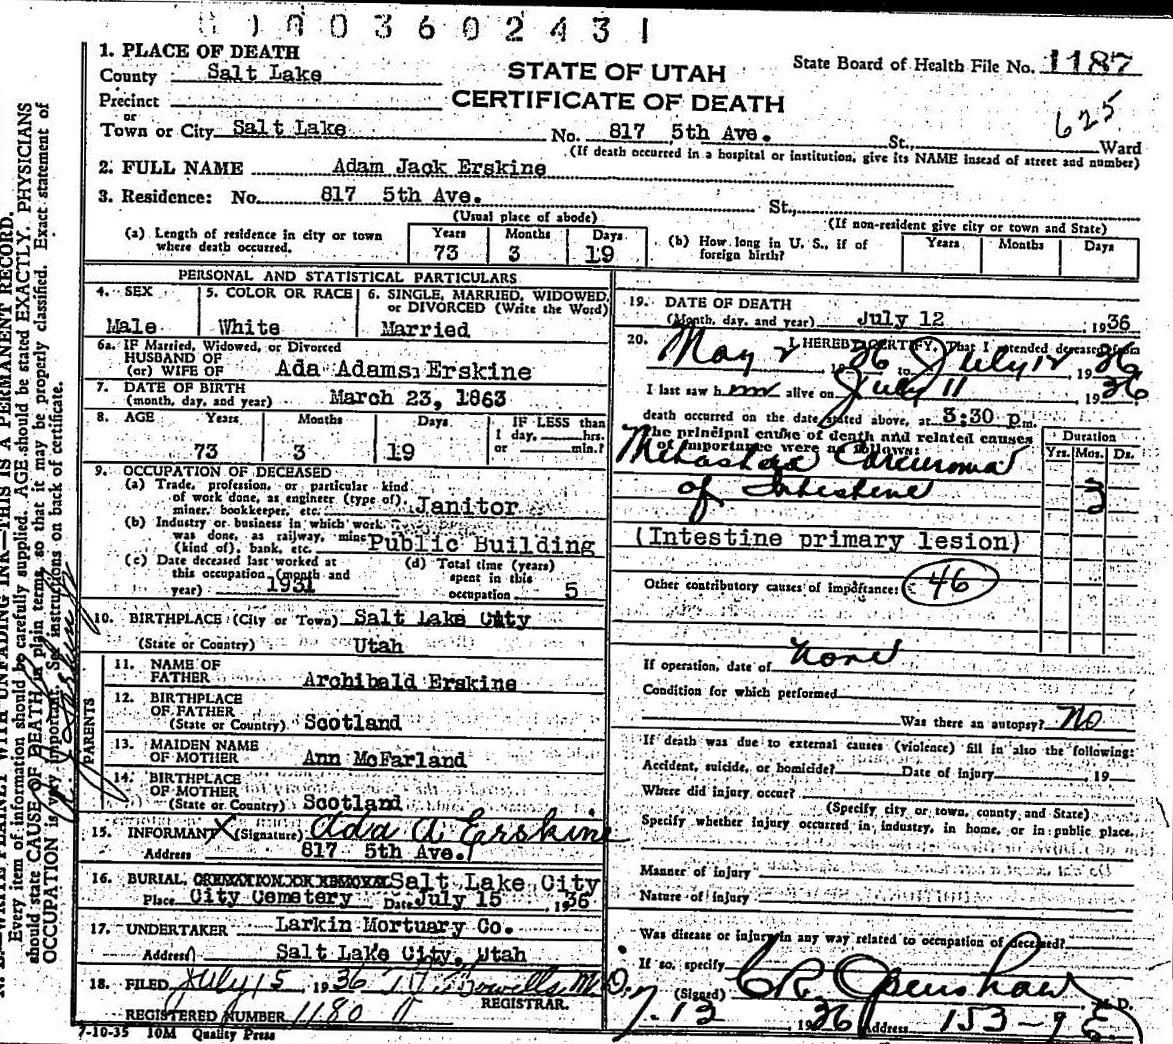 0 1 0 0 3 6 0 2 4 3 1
1. PLACE OF DEATH
County Salt Lake
STATE OF UTAH
CERTIFICATE OF DEATH
State Board of Health File No. 1187
Precinct
or
Town or City Salt Lake No. 817 5th Ave. St., Ward
625
(If death occurred in a hospital or institution, give its NAME instead of street and number)
2. FULL NAME Adam Jack Erskine
3. Residence: No. 817 5th Ave. St.,
(Usual place of abode) (If non-resident give city or town and State)
(a) Length of residence in city or town where death occurred. Years 73 Months 3 Days 19
(b) How long in U. S., if of foreign birth? Years Months Days
PERSONAL AND STATISTICAL PARTICULARS
4. SEX Male
5. COLOR OR RACE White
6. SINGLE, MARRIED, WIDOWED, or DIVORCED (Write the Word) Married
6a. IF Married, Widowed, or Divorced
HUSBAND OF
(or) WIFE OF Ada Adams Erskine
7. DATE OF BIRTH
(month, day, and year) March 23, 1863
8. AGE Years 73 Months 3 Days 19 IF LESS than 1 day, hrs. or min.?
9. OCCUPATION OF DECEASED
(a) Trade, profession, or particular kind
of work done, as engineer (type of),
miner, bookkeeper, etc. Janitor
(b) Industry or business in which work
was done, as railway, mine
(kind of), bank, etc. Public Building
(c) Date deceased last worked at
this occupation (month and
year) 1931
(d) Total time (years)
spent in this
occupation 5
10. BIRTHPLACE (City or Town) Salt Lake City
(State or Country) Utah
PARENTS
11. NAME OF
FATHER Archibald Erskine
12. BIRTHPLACE
OF FATHER
(State or Country) Scotland
13. MAIDEN NAME
OF MOTHER Ann McFarland
14. BIRTHPLACE
OF MOTHER
(State or Country) Scotland
15. INFORMANT X (Signature) Ada A Erskine
Address 817 5th Ave.
16. BURIAL, CREMATION OR REMOVAL Salt Lake City
Place City Cemetery Date July 15 , 1936
17. UNDERTAKER Larkin Mortuary Co.
Address Salt Lake City, Utah
18. FILED July 15 1936 M.D.
REGISTRAR.
REGISTERED NUMBER 1180
7-10-35 10M Quality Press
19. DATE OF DEATH
(Month, day, and year) July 12 , 1936
20. I HEREBY CERTIFY, That I attended deceased from
May 2 1936 to July 12 1936
I last saw him alive on July 11 1936
death occurred on the date stated above, at 3:30 p m.
The principal cause of death and related causes
of importance were as follows:
Duration
Yrs. Mos. Ds.
Metastatic Carcinoma
of Intestine 3
(Intestine primary lesion)
Other contributory causes of importance: 46
If operation, date of None
Condition for which performed
Was there an autopsy? No
If death was due to external causes (violence) fill in also the following:
Accident, suicide, or homicide? Date of Injury , 19
Where did injury occur?
(Specify city or town, county and State)
Specify whether injury occurred in industry, in home, or in public place.
Manner of injury
Nature of injury
Was disease or injury in any way related to occupation of deceased?
If so, specify
(Signed) C R Openshaw M. D.
7-13 , 1936 Address 153-7 E
WRITE PLAINLY WITH UNFADING INK—THIS IS A PERMANENT RECORD.
Every item of information should be carefully supplied. AGE should be stated EXACTLY. PHYSICIANS
should state CAUSE OF DEATH in plain terms, so that it may be properly classified. Exact statement of
OCCUPATION is very important. See instructions on back of certificate.